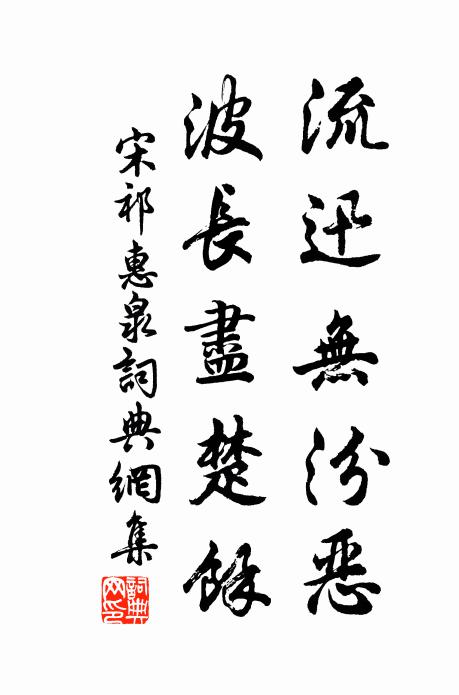 流迅無汾惡
波長盡楚餘
宋祁惠泉詞典網集
詞典网印